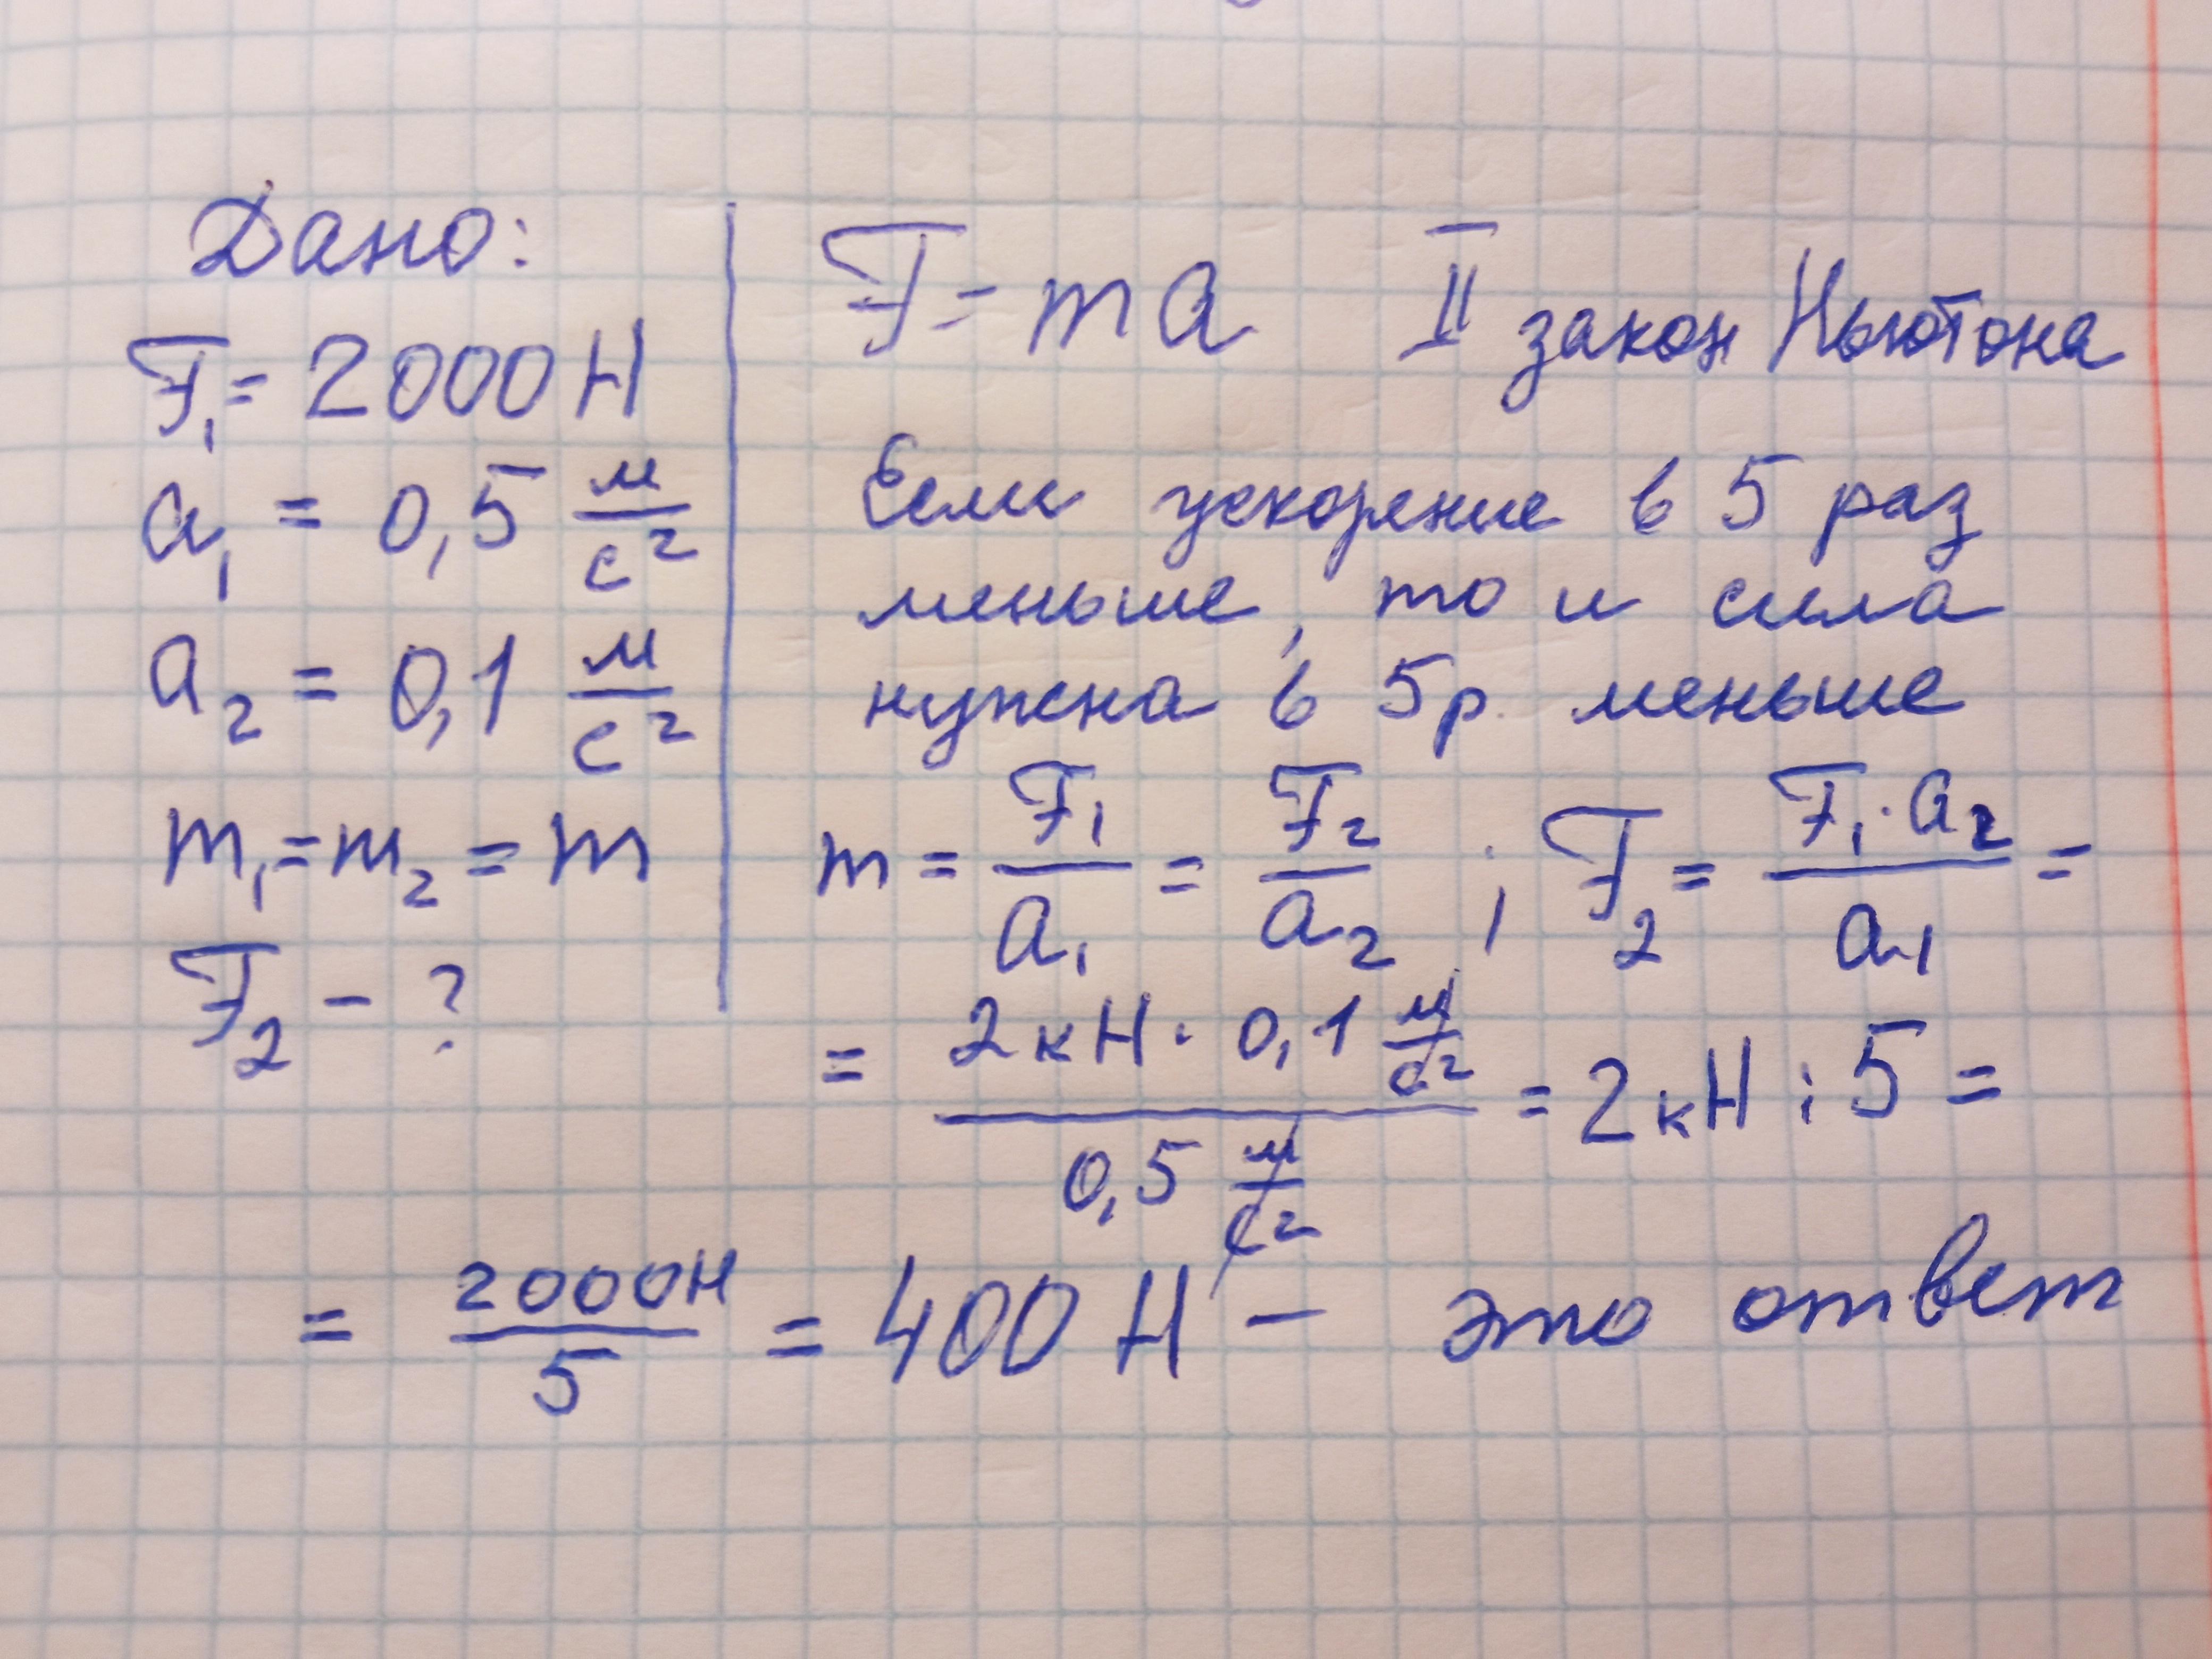 Дано:
F₁ = 2000 Н
a₁ = 0,5 м/с²
a₂ = 0,1 м/с²
m₁ = m₂ = m
F₂ - ?
F = ma II закон Ньютона
Если ускорение в 5 раз
меньше, то и сила
нужна в 5р. меньше
m = F₁/a₁ = F₂/a₂ ; F₂ = F₁·a₂/a₁ =
= 2кН · 0,1 м/с² / 0,5 м/с² = 2кН : 5 =
= 2000Н/5 = 400 Н - это ответ